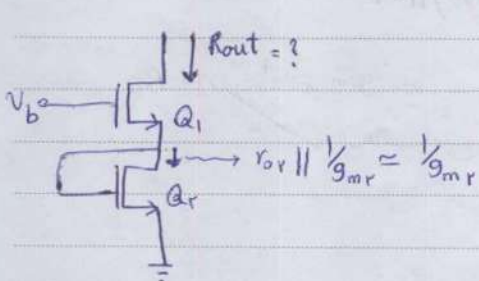 Rout = ?
V_b
Q_1
r_o۲ || 1/g_m۲ ≃ 1/g_m۲
Q_۲